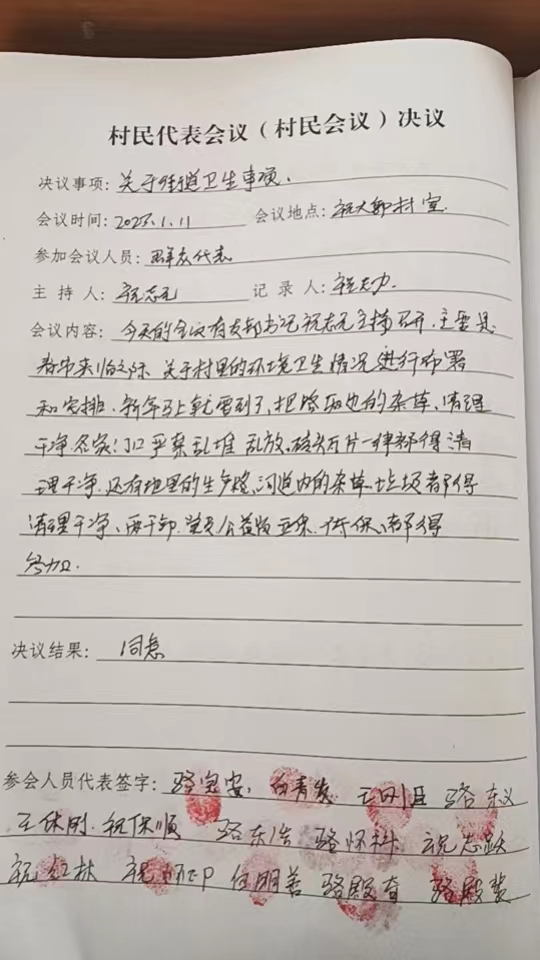 村民代表会议（村民会议）决议
决议事项：关于街道卫生事项.
会议时间：2023.1.11 会议地点：祝大郭村室
参加会议人员：群众代表
主持人：祝志元 记录人：
会议内容：今天的会议有支部书记祝志元主持召开.主要是
春节来临之际 关于村里的环境卫生情况进行布署
和安排.新年马上就要到了,把路边的杂草、清理
干净.各家门口严禁乱堆乱放.砖头瓦片一律都得清
理干净.还有地里的生产路、河道内的杂草.垃圾都得
清理干净、两干部.党员公益岗 保、都得
参加.
决议结果：同意
参会人员代表签字：骆宝安. 白青发 王刚 骆东义
王休刚.祝保顺 骆东浩 骆怀科 祝志跃
祝红林 祝怀 任明善 骆殿奇 骆殿